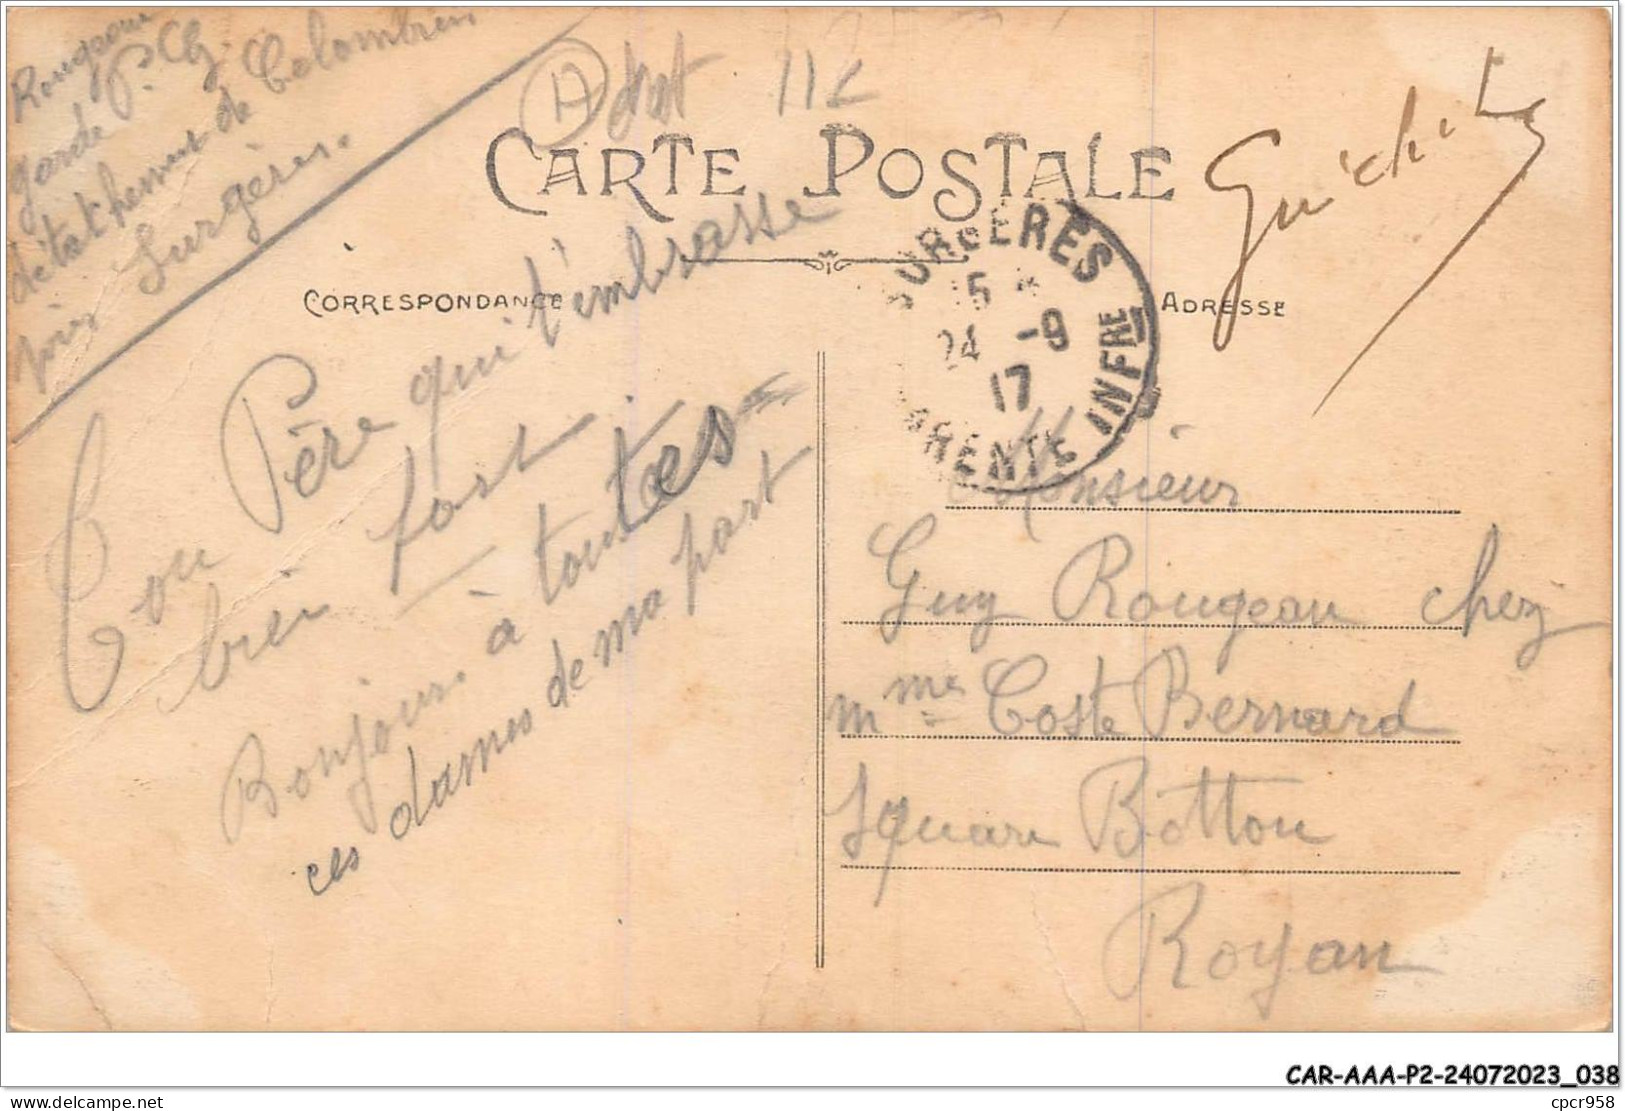 Rougeau
garde P. G.
détachement de Colombier
par Surgères.
A dest 112
CARTE POSTALE
Guichets
CORRESPONDANCE
ADRESSE
SURGERES
15
24 -9
17
CHARENTE INFRE
Ton Père qui t'embrasse
bien fort
Bonjour à toutes
ces dames de ma part
Monsieur
Guy Rougeau chez
Mme Coste Bernard
Square Botton
Royan
CAR-AAA-P2-24072023_038
delcampe.net
cpcr958